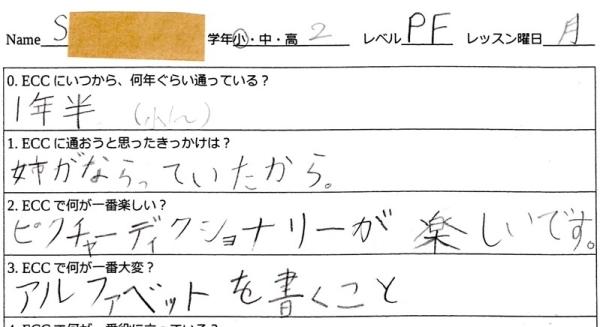 Name S 学年 小・中・高 2 レベル PF レッスン曜日 月
0. ECCにいつから、何年ぐらい通っている？
1年半 (小1〜)
1. ECCに通おうと思ったきっかけは？
姉がならっていたから。
2. ECCで何が一番楽しい？
ピクチャーディクショナリーが楽しいです。
3. ECCで何が一番大変？
アルファベットを書くこと